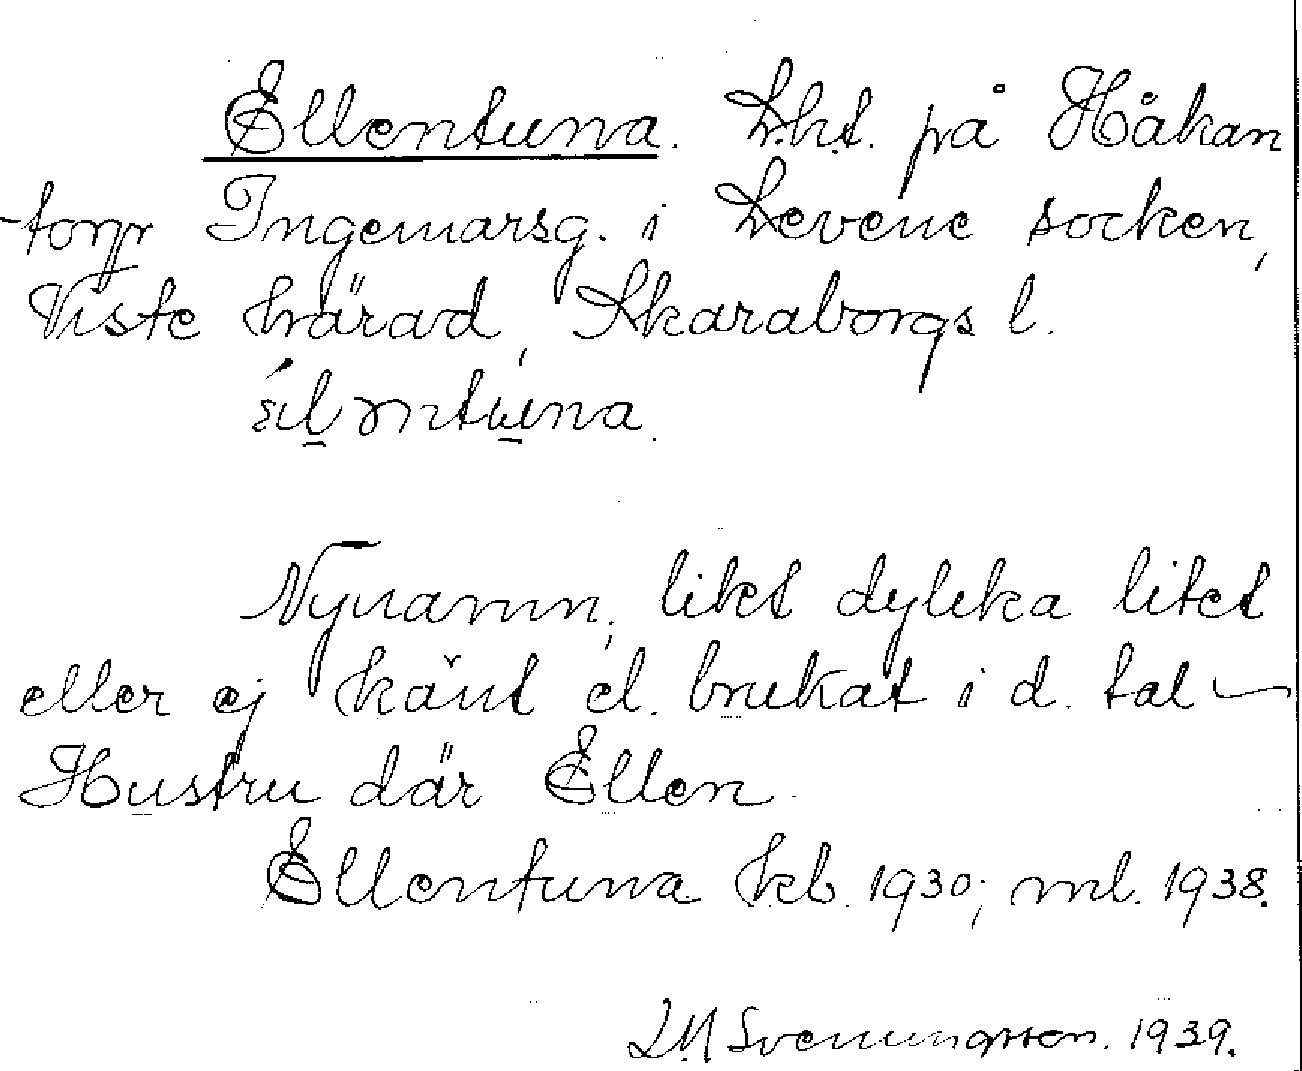 Ellentuna. Lht. på Håkan
torp Ingemarsg. i Levene socken,
Viste härad, Skaraborgs l.
Nynamn, likt dylika litet
eller ej känt el. brukat i d. tal
Hustru där Ellen.
Ellentuna kb. 1930; ml. 1938.
LM Svenungsson. 1939.